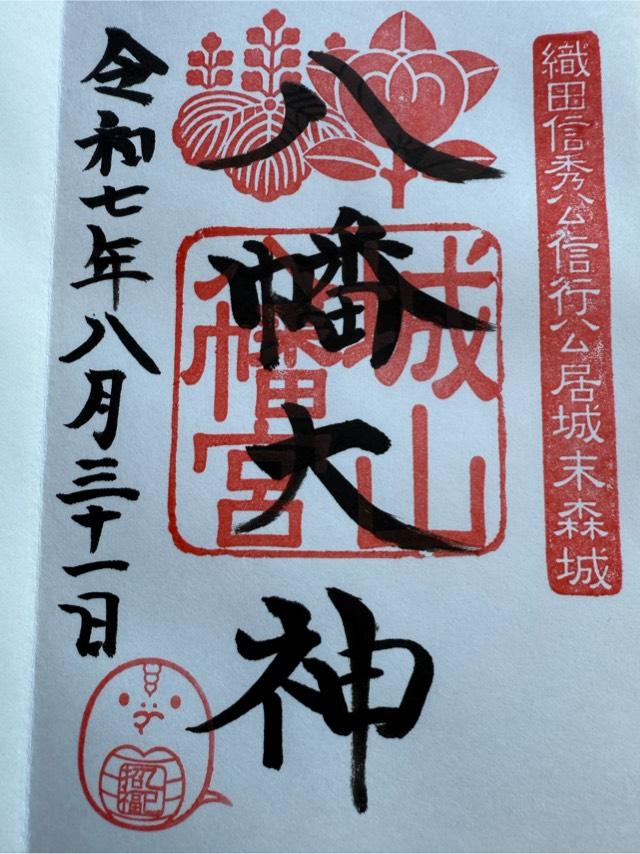 織田信秀公信行公居城末森城
八幡大神
城山八幡宮
令和七年八月三十一日
乙巳
招福